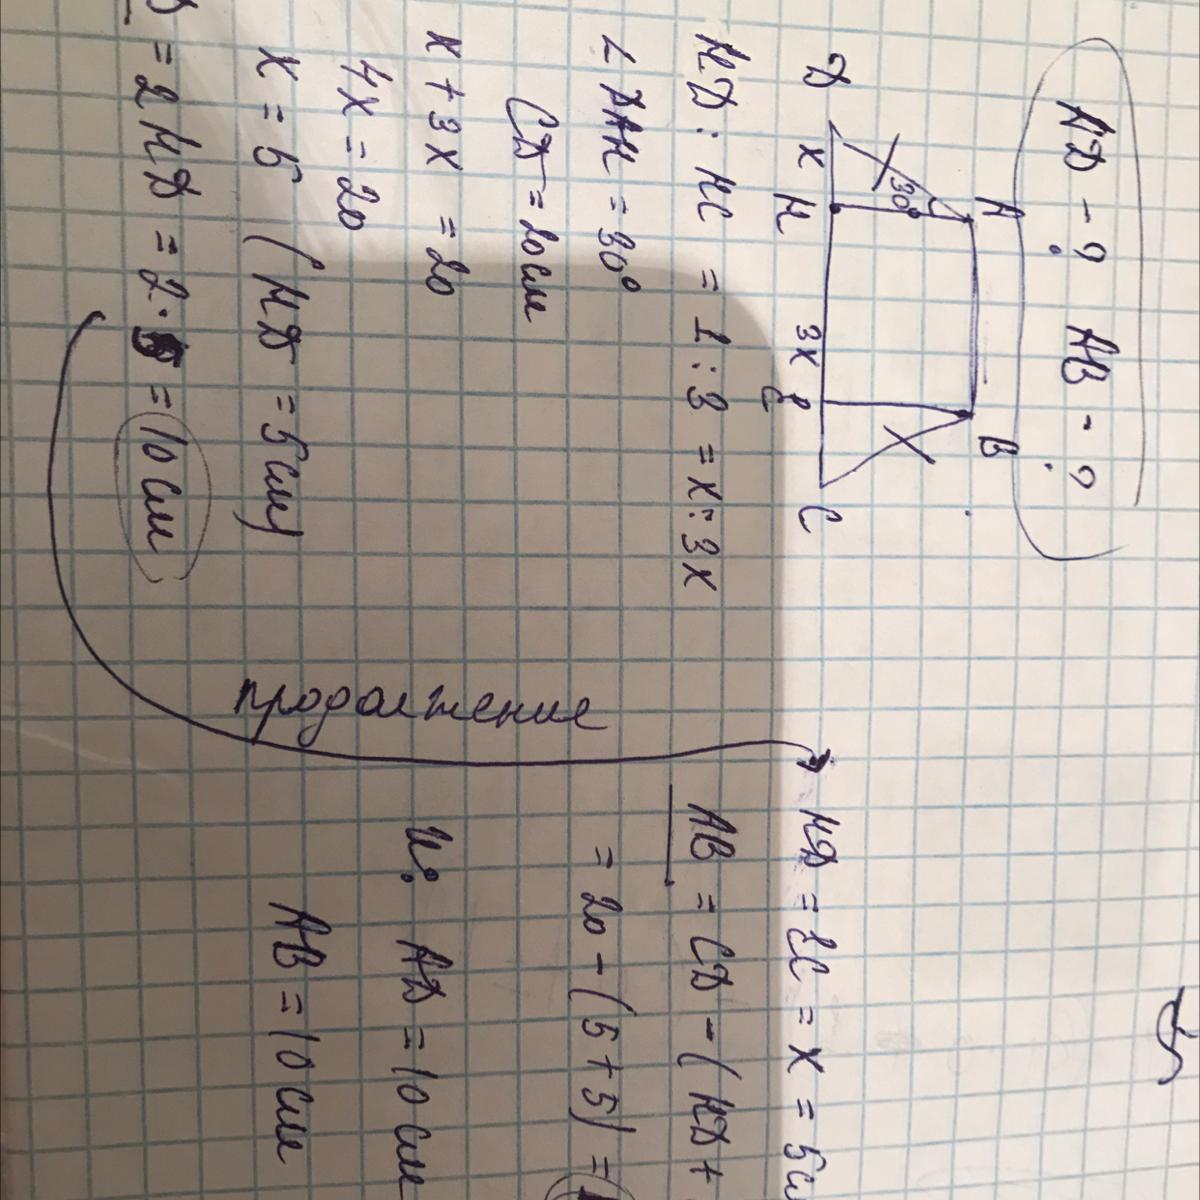 AD - ? AB - ?
A B
30°
D x H 3x E C
HD : HC = 1 : 3 = x : 3x
∠ DAH = 30°
CD = 20 см
x + 3x = 20
4x = 20
x = 5 (HD = 5 см)
D = 2 HD = 2 · 5 = 10 см
продолжение
HD = EC = x = 5 см
AB = CD - (HD +
= 20 - (5 + 5) =
И: AD = 10 см
AB = 10 см